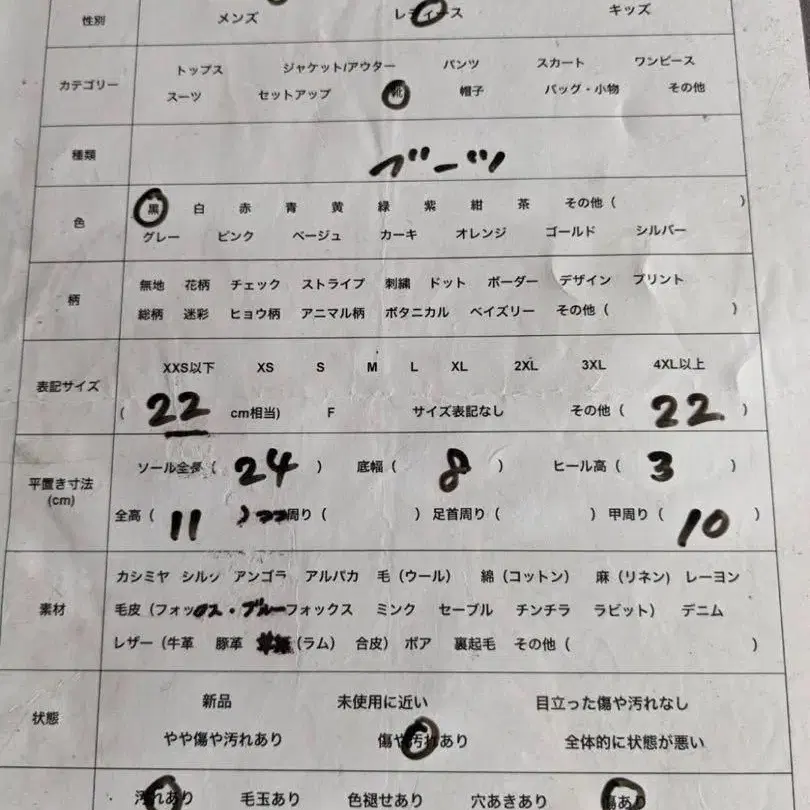 性別 メンズ レディース キッズ
カテゴリー
トップス ジャケット/アウター パンツ スカート ワンピース
スーツ セットアップ 靴 帽子 バッグ・小物 その他
種類 ブーツ
色
黒 白 赤 青 黄 緑 紫 紺 茶 その他( )
グレー ピンク ベージュ カーキ オレンジ ゴールド シルバー
柄
無地 花柄 チェック ストライプ 刺繍 ドット ボーダー デザイン プリント
総柄 迷彩 ヒョウ柄 アニマル柄 ボタニカル ペイズリー その他( )
表記サイズ
XXS以下 XS S M L XL 2XL 3XL 4XL以上
( 22 cm相当) F サイズ表記なし その他( 22 )
平置き寸法
(cm)
ソール全長( 24 ) 底幅( 8 ) ヒール高( 3 )
全高( 11 ) 周り( ) 足首周り( ) 甲周り( 10 )
素材
カシミヤ シルク アンゴラ アルパカ 毛(ウール) 綿(コットン) 麻(リネン) レーヨン
毛皮(フォックス・ブルーフォックス ミンク セーブル チンチラ ラビット) デニム
レザー(牛革 豚革 (ラム) 合皮) ボア 裏起毛 その他( )
状態
新品 未使用に近い 目立った傷や汚れなし
やや傷や汚れあり 傷や汚れあり 全体的に状態が悪い
汚れあり 毛玉あり 色褪せあり 穴あきあり 傷あり